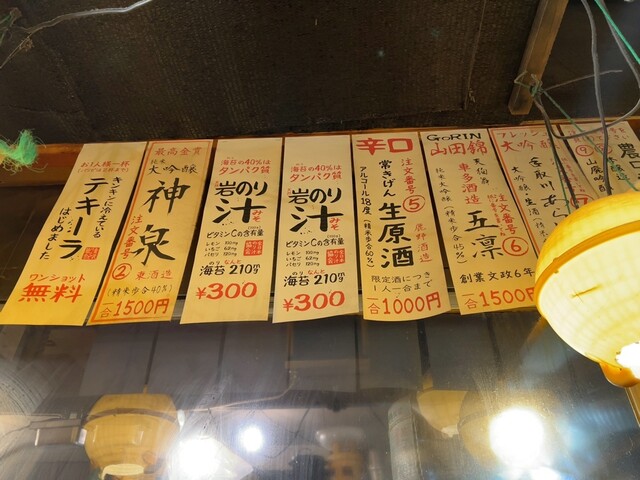 お1人様一杯
キンキンに冷えている
テキーラ
はじめました
ワンショット
無料
最高金賞
純米
大吟醸
神泉
注文番号
②
東酒造
(精米歩合40%)
一合1500円
海苔の40%は
タンパク質
岩のり
汁
みそ
ビタミンCの含有量
レモン 100mg
いちご 62mg
パセリ 120mg
のり なんと
海苔 210mg
¥300
海苔の40%は
タンパク質
岩のり
汁
みそ
ビタミンCの含有量
レモン 100mg
いちご 62mg
パセリ 120mg
のり なんと
海苔 210mg
¥300
辛口
注文番号⑤
鹿野酒造
常きげん 生原酒
アルコール18度
(精米歩合60%)
限定酒につき
1人一合まで
一合1000円
GORIN
山田錦
天狗舞
車多酒造
五凛
注文番号
⑥
純米大吟醸
(精米歩合45%)
創業文政6年
一合1500円
フレッシュ
大吟醸
手取川
⑨
山廃